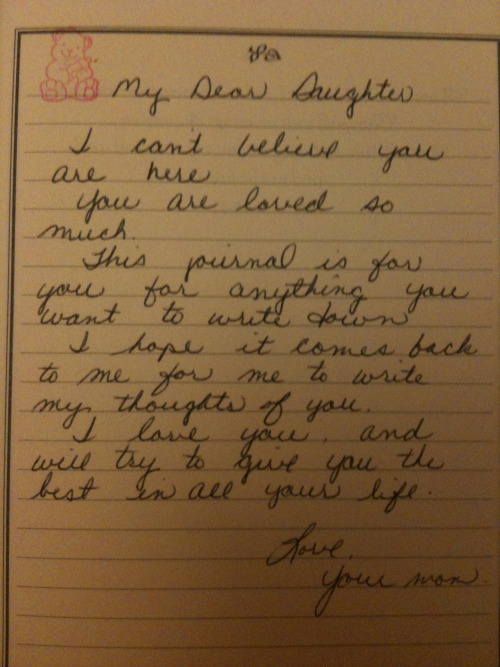 My Dear Daughter
I can't believe you
are here
You are loved so
much.
This journal is for
you for anything you
want to write down
I hope it comes back
to me for me to write
my thoughts of you.
I love you, and
will try to give you the
best in all your life.
Love,
Your mom